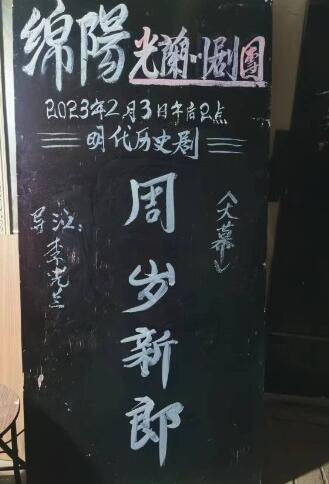 绵陽光蘭川剧團
2023年2月3日午后2点
明代历史剧
《大幕》
周岁新郎
导演:李光兰